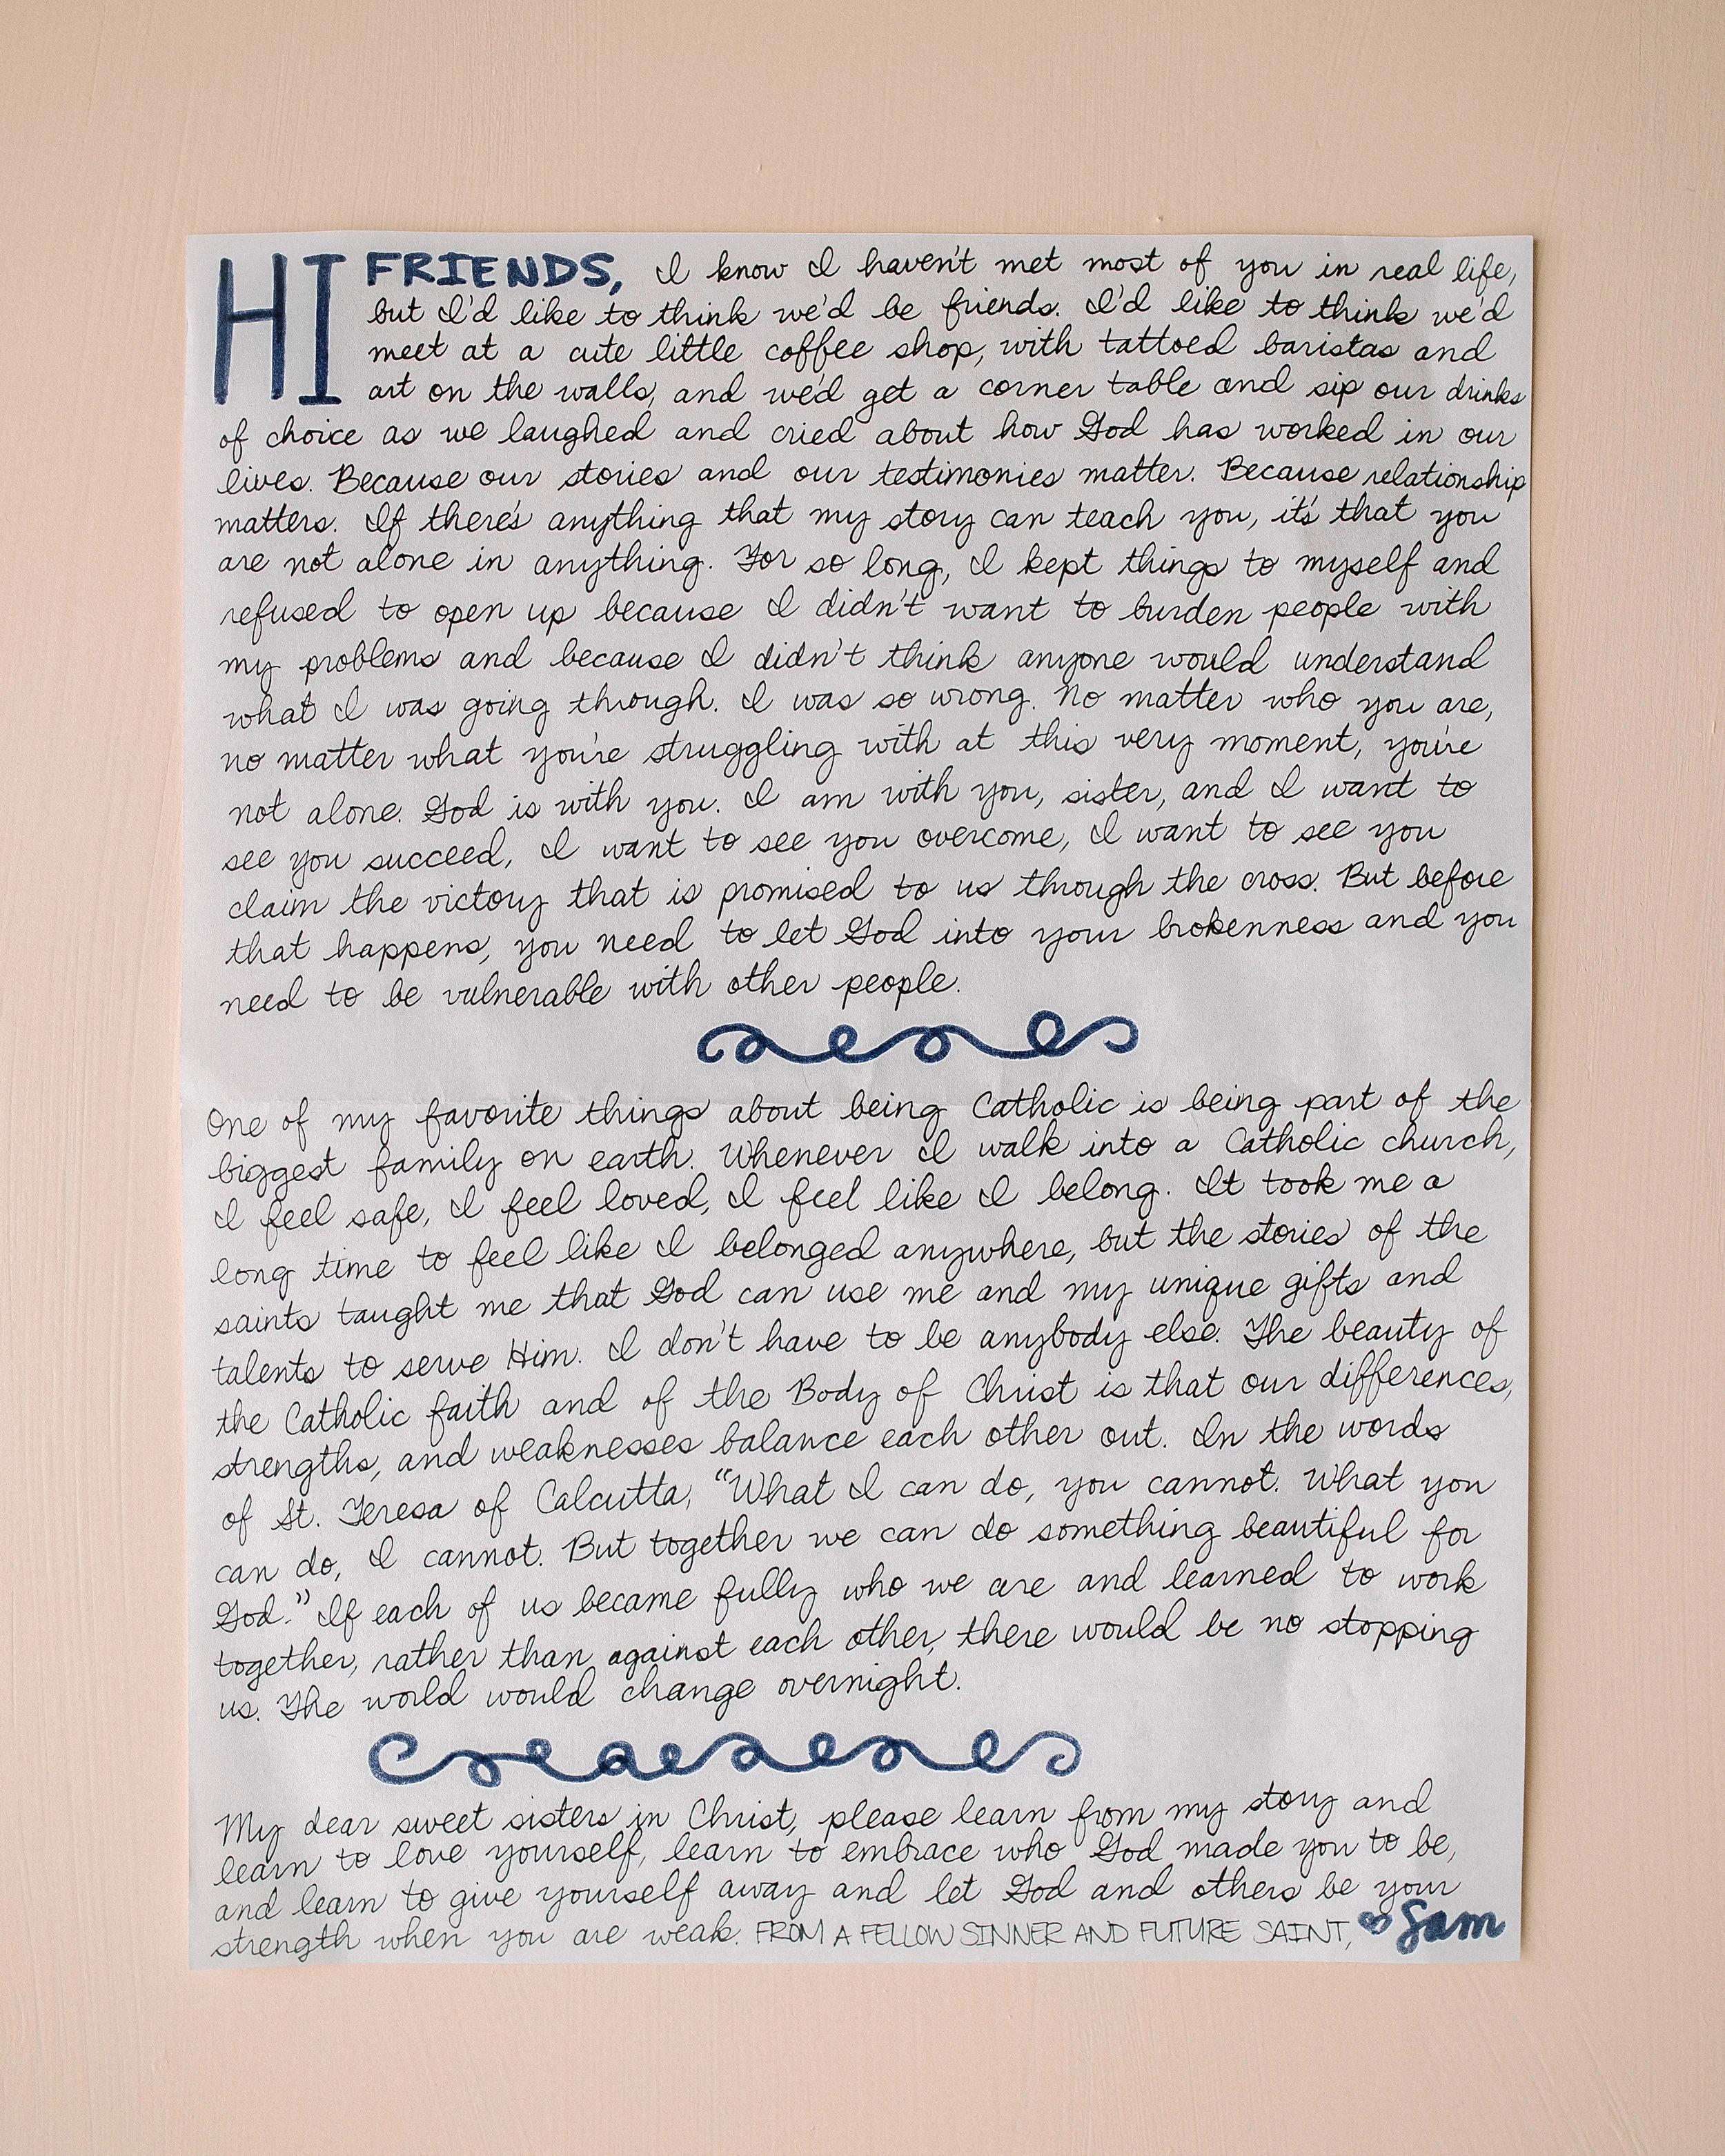 HI FRIENDS, I know I haven't met most of you in real life,
but I'd like to think we'd be friends. I'd like to think we'd
meet at a cute little coffee shop, with tattoed baristas and
art on the walls, and we'd get a corner table and sip our drinks
of choice as we laughed and cried about how God has worked in our
lives. Because our stories and our testimonies matter. Because relationship
matters. If there's anything that my story can teach you, it's that you
are not alone in anything. For so long, I kept things to myself and
refused to open up because I didn't want to burden people with
my problems and because I didn't think anyone would understand
what I was going through. I was so wrong. No matter who you are,
no matter what you're struggling with at this very moment, you're
not alone. God is with you. I am with you, sister, and I want to
see you succeed, I want to see you overcome, I want to see you
claim the victory that is promised to us through the cross. But before
that happens, you need to let God into your brokenness and you
need to be vulnerable with other people.
One of my favorite things about being Catholic is being part of the
biggest family on earth. Whenever I walk into a Catholic church,
I feel safe, I feel loved, I feel like I belong. It took me a
long time to feel like I belonged anywhere, but the stories of the
saints taught me that God can use me and my unique gifts and
talents to serve Him. I don't have to be anybody else. The beauty of
the Catholic faith and of the Body of Christ is that our differences,
strengths, and weaknesses balance each other out. In the words
of St. Teresa of Calcutta, "What I can do, you cannot. What you
can do, I cannot. But together we can do something beautiful for
God." If each of us became fully who we are and learned to work
together, rather than against each other, there would be no stopping
us. The world would change overnight.
My dear sweet sisters in Christ, please learn from my story and
learn to love yourself, learn to embrace who God made you to be,
and learn to give yourself away and let God and others be your
strength when you are weak. FROM A FELLOW SINNER AND FUTURE SAINT, Sam